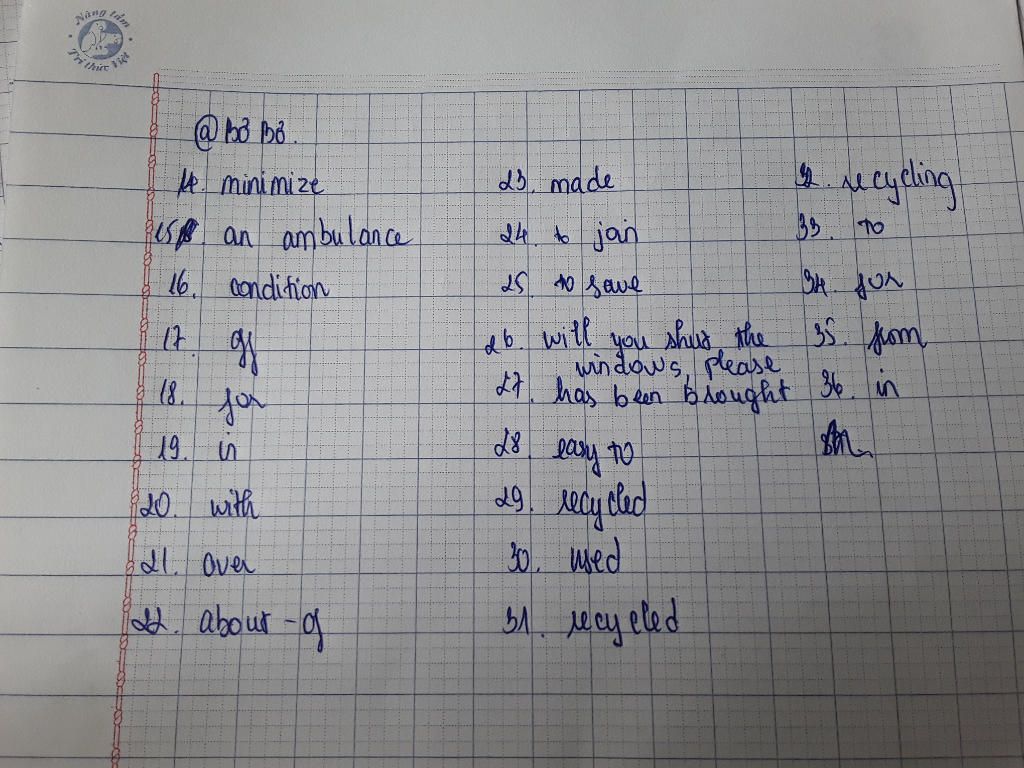 Nâng tầm
Trí thức Việt
@ Bơ Bơ.
14. minimize
15. an ambulance
16. condition
17. of
18. for
19. in
20. with
21. over
22. about - of
23. made
24. to join
25. to save
26. will you shut the
windows, please
27. has been brought
28. easy to
29. recycled
30. used
31. recycled
32. recycling
33. to
34. for
35. from
36. in